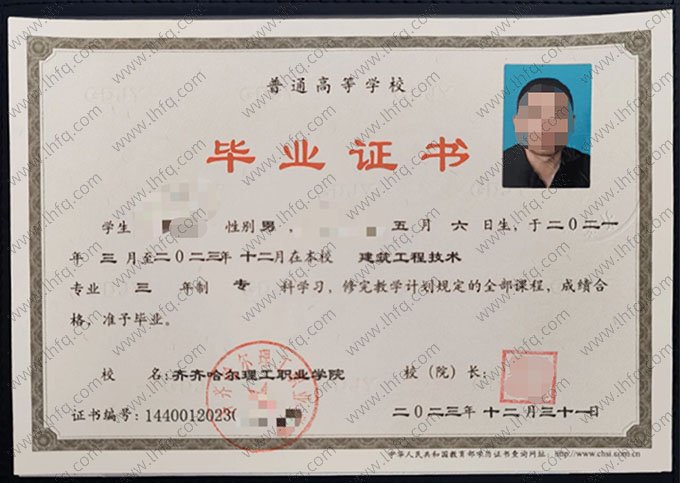 普通高等学校
毕业证书
学生 性别 男, 五月 六 日生,于二〇二一
年 三 月至二〇二三年 十二月在本校 建筑工程技术
专业 三 年制 专 科学习,修完教学计划规定的全部课程,成绩合
格,准予毕业。
校 名:齐齐哈尔理工职业学院 校(院)长:
证书编号:1440012023 二〇二三年 十二月三十一日
中华人民共和国教育部学历证书查询网址:http://www.chsi.com.cn
www.lhfq.com